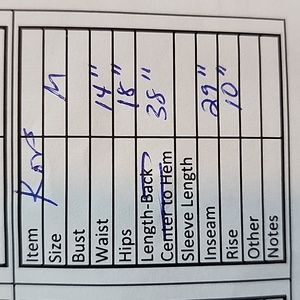 Item Kors
Size M
Bust
Waist 14"
Hips 18"
Length-Back 38"
Center to Hem
Sleeve Length
Inseam 29"
Rise 10"
Other
Notes